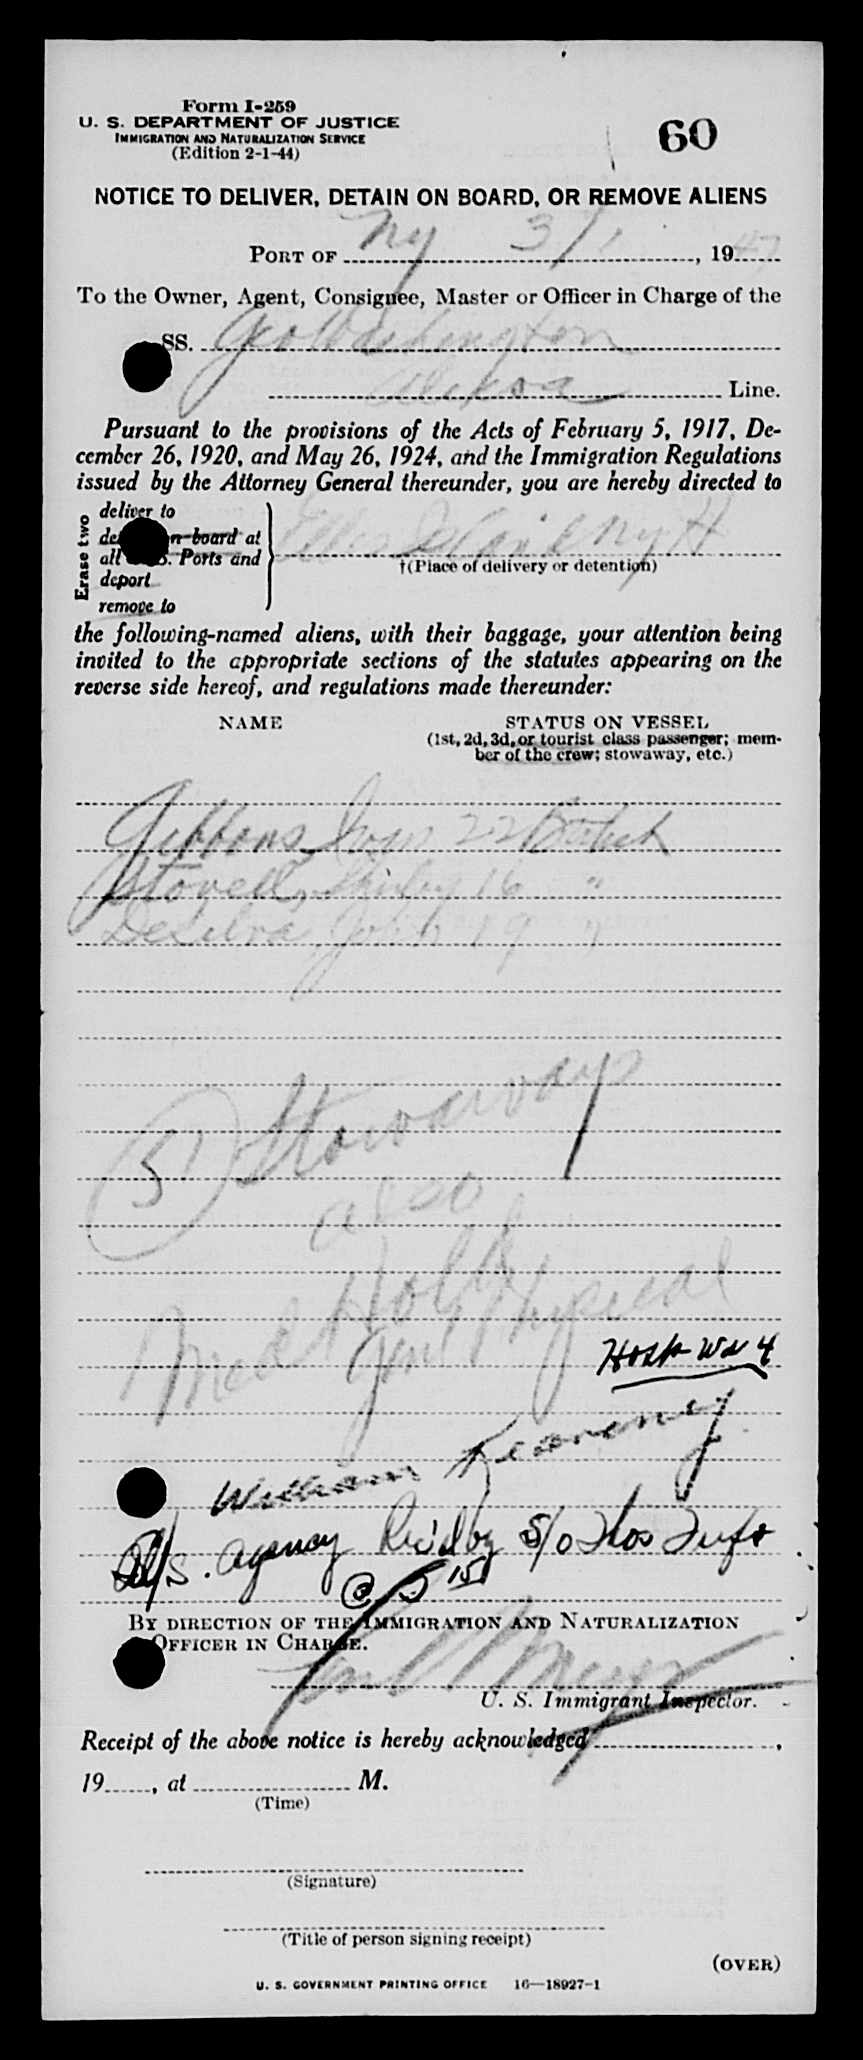 Form I-259
U. S. DEPARTMENT OF JUSTICE
IMMIGRATION AND NATURALIZATION SERVICE
(Edition 2-1-44)
60
NOTICE TO DELIVER, DETAIN ON BOARD, OR REMOVE ALIENS
PORT OF NY 3/1, 1947
To the Owner, Agent, Consignee, Master or Officer in Charge of the
SS. Geo Washington
Alcoa Line.
Pursuant to the provisions of the Acts of February 5, 1917, De-
cember 26, 1920, and May 26, 1924, and the Immigration Regulations
issued by the Attorney General thereunder, you are hereby directed to
Erase two
deliver to
n board at
all S. Ports and
deport
remove to
Ellis Island NYH
†(Place of delivery or detention)
the following-named aliens, with their baggage, your attention being
invited to the appropriate sections of the statutes appearing on the
reverse side hereof, and regulations made thereunder:
NAME
STATUS ON VESSEL
(1st, 2d, 3d, or tourist class passenger; mem-
ber of the crew; stowaway, etc.)
Gibbons, 22 British
Stovell, 16 "
DeSilva, John 19 "
Stowaways
also
Med Hold
Genl Physical
Hosp Wd 4
William Kearney
agency Rec'd by S/O Thos
@ 5 15
BY DIRECTION OF THE IMMIGRATION AND NATURALIZATION
OFFICER IN CHARGE.
U. S. Immigrant Inspector.
Receipt of the above notice is hereby acknowledged ,
19 , at M.
(Time)
(Signature)
(Title of person signing receipt)
(OVER)
U. S. GOVERNMENT PRINTING OFFICE 16—18927-1